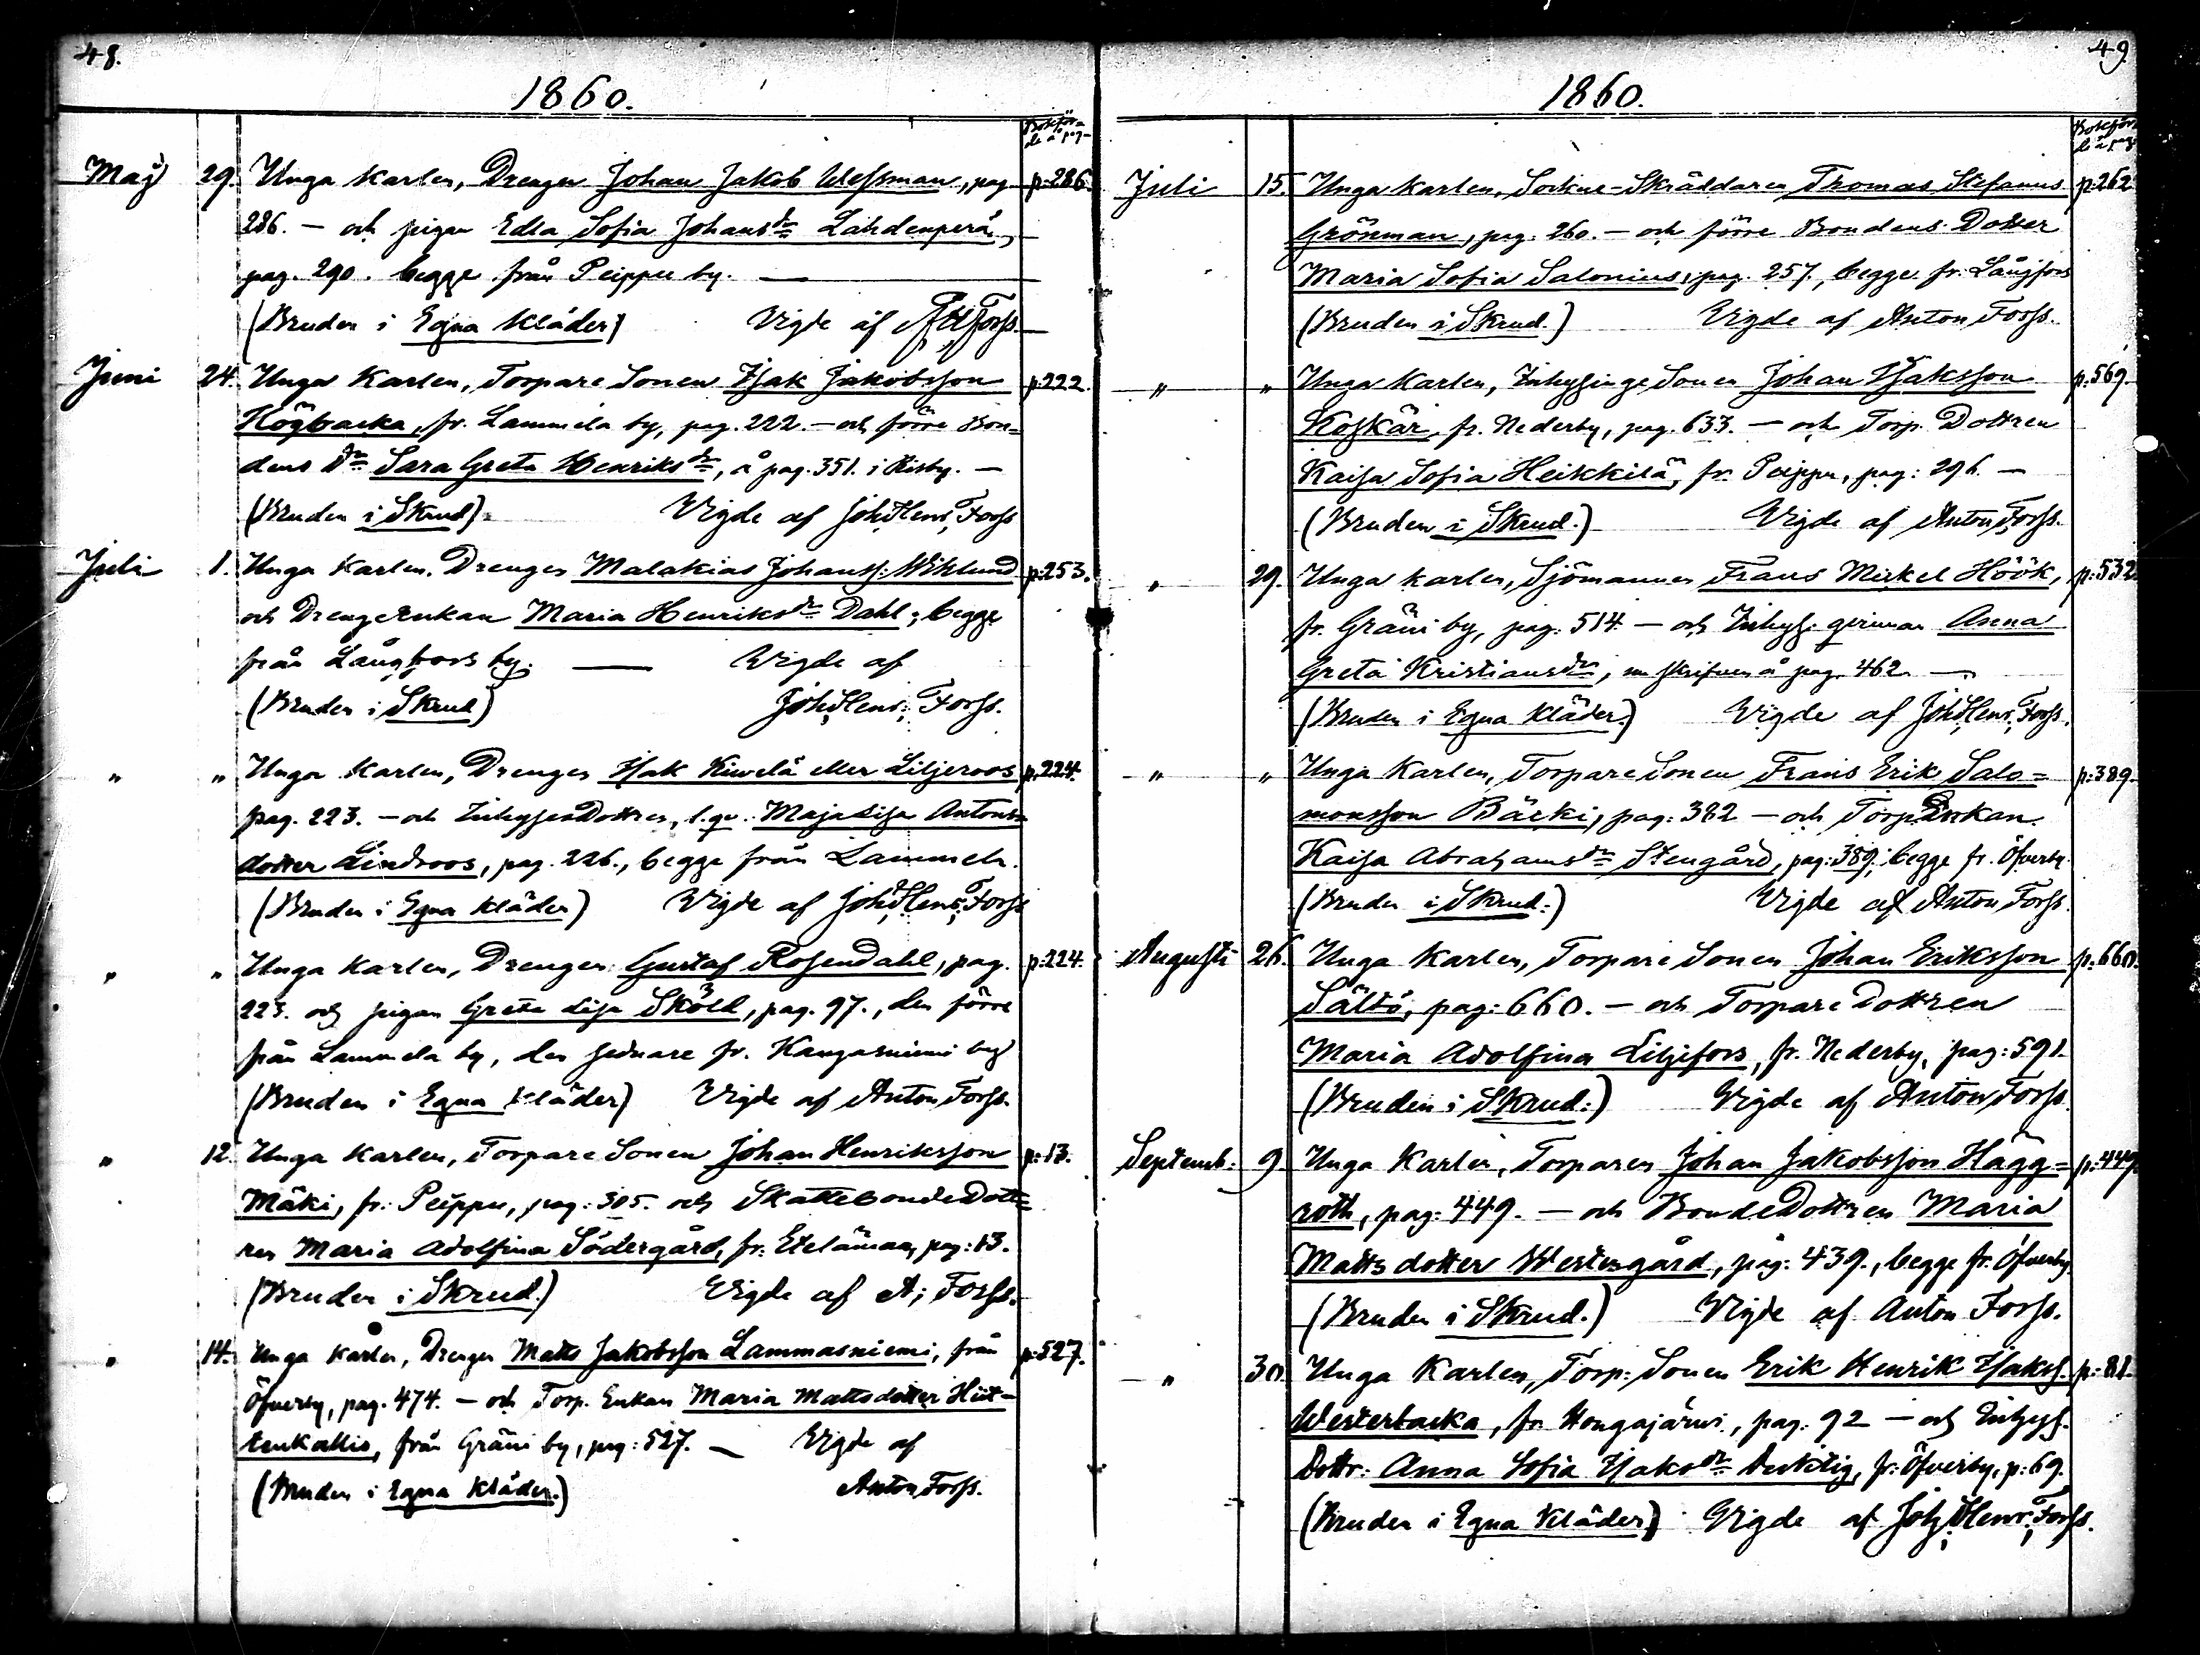 48.
1860.
Bokför-
de å pag.
Maji 29. Unga Karlen, Drengen Johan Jakob Wessman, pag. p: 286.
286. — och pigan Edla Sofia Johansdr Lähdenperä,
pag. 290. begge från Peippu by. —
(Bruden i Egna Kläder) Vigde af Forss.
Juni 24. Unga Karlen, Torpare Sonen Isak Jakobsson p: 222.
Högbacka, fr. Lammela by, pag. 222. — och förre Bon=
dens Dr Sara Greta Henriksdr, å pag. 351. i Risby. —
(Bruden i Skrud). Vigde af Joh: Henr: Forss
Juli 1. Unga Karlen, Drengen Malakias Johanss: Wiklund p: 253.
och DrengeEnkan Maria Henriksdr Dahl; begge
från Långfors by. — Vigde af
(Bruden i Skrud) Joh: Henr: Forss.
" " Unga Karlen, Drengen Isak Kiwelä eller Liljeroos p: 224.
pag. 223. — och InhysesDottren, l. qv. Maja Lisa Antons=
dotter Lindroos, pag. 226., begge från Lammela.
(Bruden i Egna Kläder) Vigde af Joh: Henr: Forss
" " Unga Karlen, Drengen Gustaf Rosendahl, pag. p: 224.
223. och pigan Greta Lisa Sköld, pag. 97., den förre
från Lammela by, den sednare fr. Kangasniemi by
(Bruden i Egna Kläder) Vigde af Anton Forss.
" 12. Unga Karlen, Torpare Sonen Johan Henriksson p: 13.
Mäki, fr. Peippu, pag: 305. och SkattebondeDott=
ren Maria Adolfina Södergård, fr. Etelämaa, pag: 13.
(Bruden i Skrud.) Vigde af A; Forss.
" 14. Unga Karlen, Drengen Matts Jakobsson Lammasniemi, från p: 527.
Öfverby, pag. 474. — och Torp. Enkan Maria Mattsdotter Hiit-
tenkallio, från Gräni by, pag: 527. — Vigde af
(Bruden i Egna Kläder.) Anton Forss.
49.
1860.
Bokför-
de å pag.
Juli 15. Unga Karlen, Sockne-Skräddaren Thomas Stefanus p: 262
Grönman, pag. 260. — och förre Bondens Dotter
Maria Sofia Salonius, pag. 257., begge fr. Långfors
(Bruden i Skrud.) Vigde af Anton Forss.
" " Unga Karlen, Inhysinge Sonen Johan Isaksson p: 569.
Koskär, fr. Nederby, pag. 633. — och Torp. Dottren
Kaisa Sofia Heikkilä, fr. Peippu, pag: 296. —
(Bruden i Skrud.) Vigde af Anton Forss.
" 29. Unga Karlen, Sjömannen Frans Mickel Höök, p: 532
fr. Gräni by, pag. 514. — och Inhys: qvinnan Anna
Greta Kristiansdr, skrifven å pag. 462. —
(Bruden i Egna Kläder.) Vigde af Joh: Henr: Forss.
" " Unga Karlen, Torpare Sonen Frans Erik Salo= p: 389.
monsson Bäcki, pag: 382 — och TorpEnkan.
Kaisa Abrahamsdr Stengård, pag: 389; begge fr. Öfverby.
(Bruden i Skrud.) Vigde af Anton Forss.
Augusti 26. Unga Karlen, Torpare Sonen Johan Eriksson p: 660.
Sältö, pag: 660. — och Torpare Dottren
Maria Adolfina Liljefors, fr. Nederby, pag: 591.
(Bruden i Skrud.) Vigde af Anton Forss.
Septemb: 9. Unga Karlen, Torparen Johan Jakobsson Hägg= p: 449.
roth, pag: 449. — och BondeDottren Maria
Matts dotter Westergård, pag: 439., begge fr. Öfverby.
(Bruden i Skrud.) Vigde af Anton Forss.
" 30. Unga Karlen, Torp: Sonen Erik Henrik Isakss. p: 81.
Westerbacka, fr. Hongajärwi, pag: 92 — och Inhys.
Dottr: Anna Sofia Isaksdr Ducktig, fr: Öfverby, p: 69.
(Bruden i Egna Kläder) Vigde af Joh; Henr; Forss.